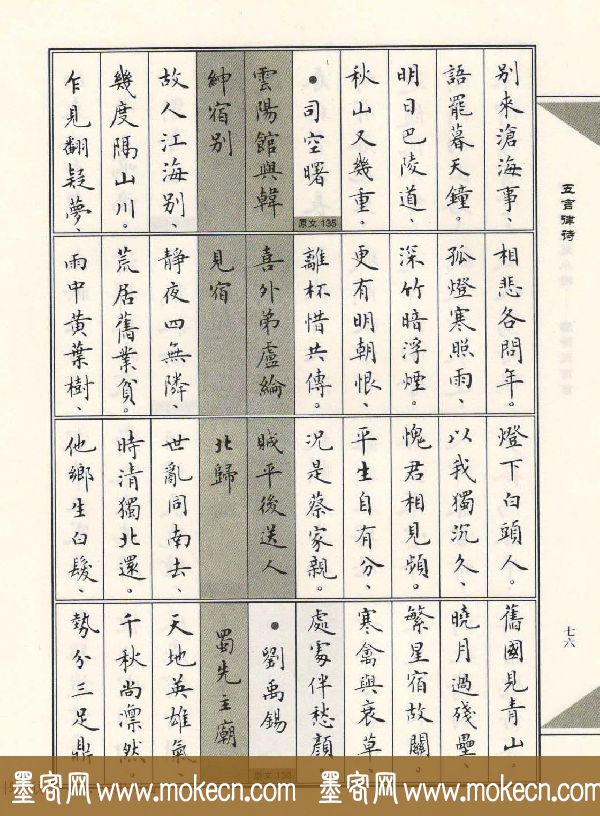 別來滄海事、
語罷暮天鐘。
明日巴陵道、
秋山又幾重。
• 司空曙
原文 135
雲陽館與韓
紳宿別
故人江海別、
幾度隔山川。
乍見翻疑夢、
相悲各問年。
孤燈寒照雨、
深竹暗浮煙。
更有明朝恨、
離杯惜共傳。
喜外弟盧綸
見宿
靜夜四無隣、
荒居舊業貧。
雨中黃葉樹、
燈下白頭人。
以我獨沉久、
愧君相見頻。
平生自有分、
況是蔡家親。
賊平後送人
北歸
世亂同南去、
時清獨北還。
他鄉生白髮、
舊國見青山。
曉月過殘壘、
繁星宿故關。
寒禽與衰草、
處處伴愁顏。
• 劉禹錫
原文 136
蜀先主廟
天地英雄氣、
千秋尚凜然。
勢分三足鼎
五言律詩
七六
墨客网 www.mokecn.com 墨客网 www.mokecn.com